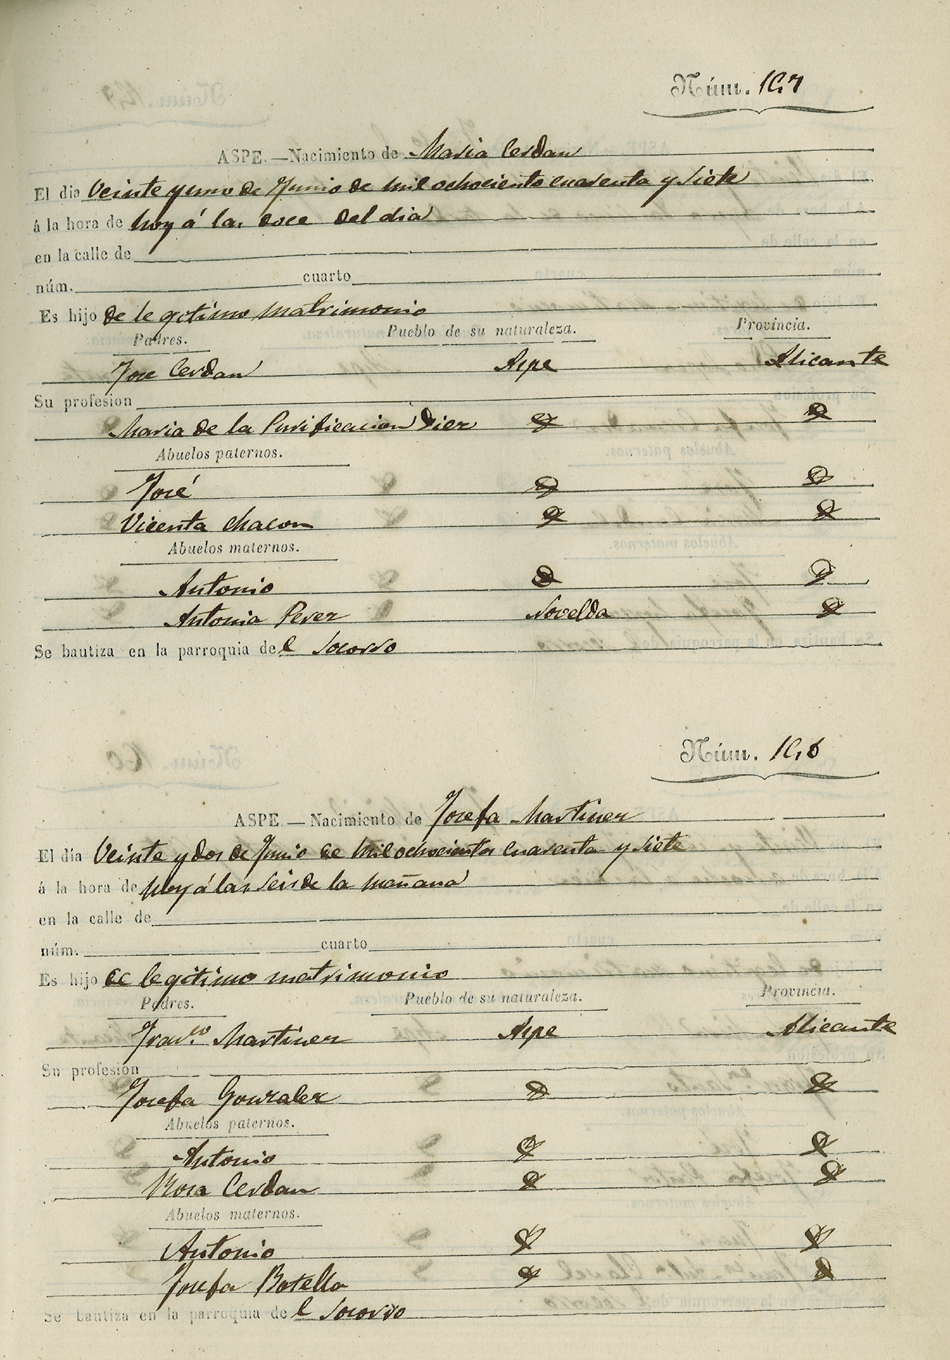 Núm. 167
ASPE.—Nacimiento de Maria Cerdan
El dia Veinte y uno de Junio de mil ochociento cuarenta y siete
á la hora de hoy á las doce del dia
en la calle de
núm. cuarto
Es hijo de legitimo matrimonio
Padres. Pueblo de su naturaleza. Provincia.
Jose Cerdan Aspe Alicante
Su profesion
Maria de la Purificacion Diez
Abuelos paternos.
José
Vicenta Chacon
Abuelos maternos.
Antonio
Antonia Perez Novelda
Se bautiza en la parroquia del Socorro
Núm.
ASPE.—Nacimiento de Josefa Martinez
El día Veinte y dos de Junio de mil ochocientos cuarenta y siete
á la hora de hoy á las seis de la mañana
en la calle de
núm. cuarto
Es hijo de legitimo matrimonio
Padres. Pueblo de su naturaleza. Provincia.
Fran.co Martinez Aspe Alicante
Su profesion
Josefa Gonzalez
Abuelos paternos.
Antonio
Rosa Cerdan
Abuelos maternos.
Antonio
Josefa Botella
Se bautiza en la parroquia del Socorro